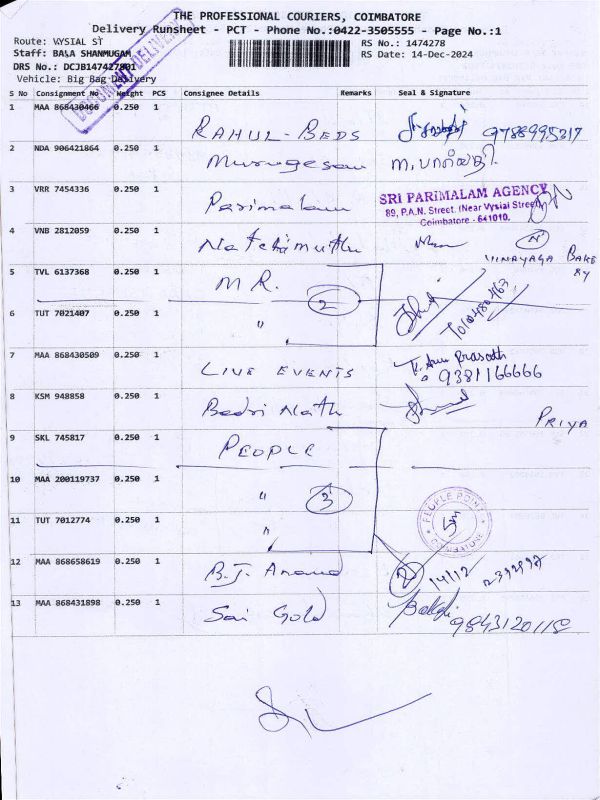 THE PROFESSIONAL COURIERS, COIMBATORE
Delivery Runsheet - PCT - Phone No.:0422-3505555 - Page No.:1
Route: VYSIAL ST
RS No.: 1474278
Staff: BALA SHANMUGAM
RS Date: 14-Dec-2024
DRS No.: DCJB147427801
Vehicle: Big Bag Delivery
S No Consignment No Weight PCS Consignee Details Remarks Seal & Signature
1 MAA 868430466 0.250 1
RAHUL-BEDS 9788995217
2 NDA 906421864 0.250 1
Murugesan
3 VRR 7454336 0.250 1
Parimalam
SRI PARIMALAM AGENCY
89, P.A.N. Street, (Near Vysial Street)
Coimbatore - 641010.
4 VNB 2812059 0.250 1
Natchimuthu
VINAYAGA BAKE
RY
5 TVL 6137368 0.250 1
MR.
2
6 TUT 7021407 0.250 1
"
7 MAA 868430509 0.250 1
LIVE EVENTS
9381166666
8 KSM 948858 0.250 1
Badri Nath
PRIYA
9 SKL 745817 0.250 1
PEOPLE
10 MAA 200119737 0.250 1
" 3
PEOPLE POINT
COIMBATORE
11 TUT 7012774 0.250 1
"
12 MAA 868658619 0.250 1
B.J. Anand 14/12
13 MAA 868431898 0.250 1
Sai Gold
9843120118